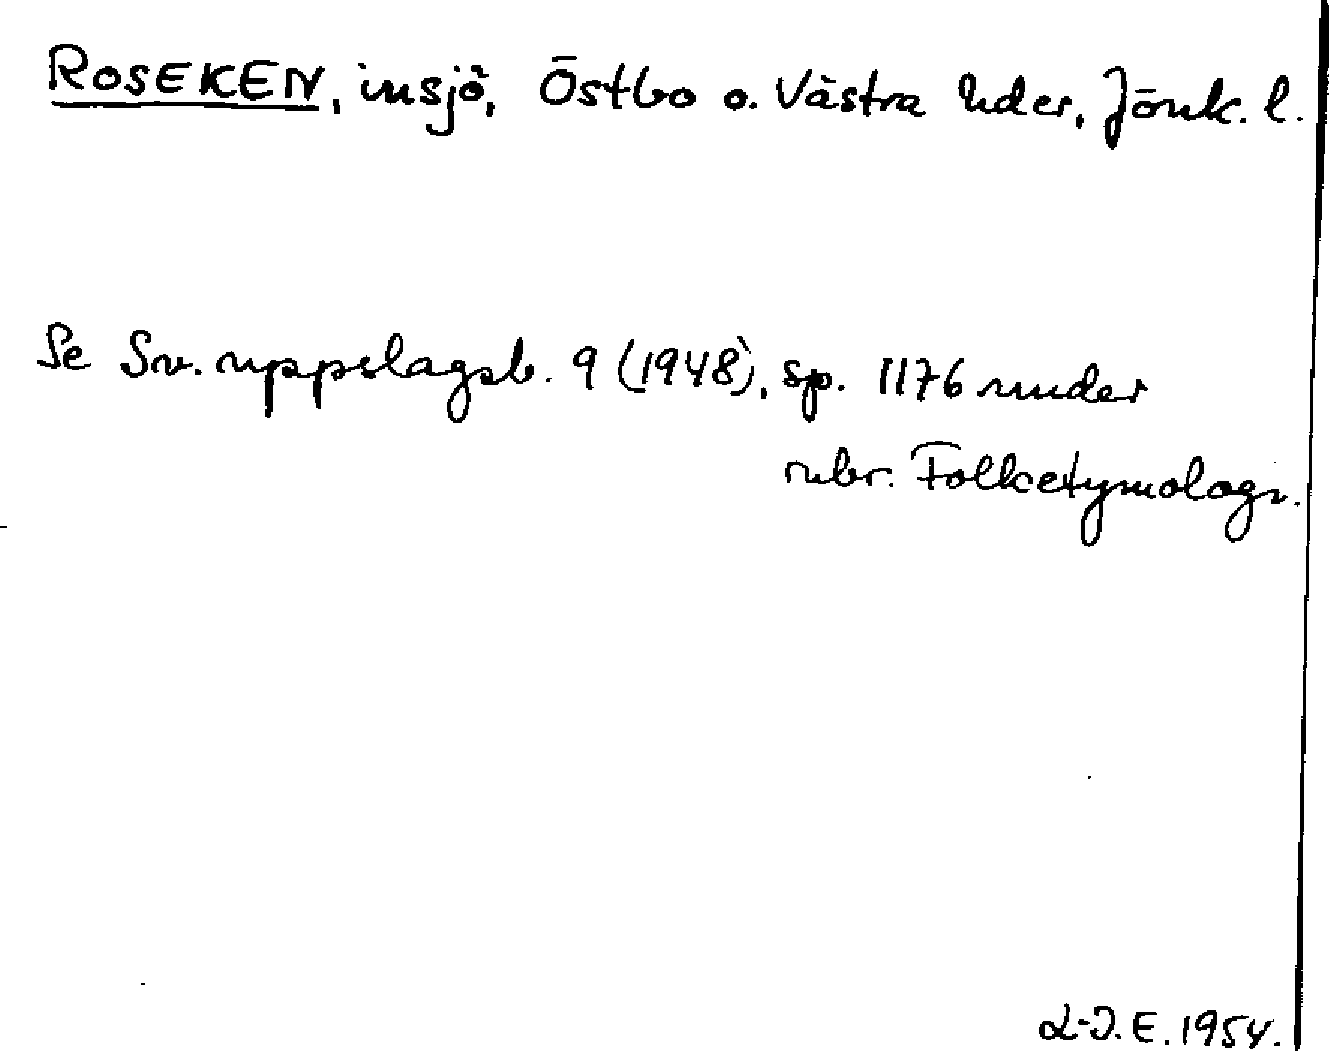 ROSEKEN, insjö, Östbo o. Västra hder, Jönk. l.
Se Sv. uppslagsb. 9 (1948), sp. 1176 under
rubr. Folketymologi.
L-J. E. 1954.